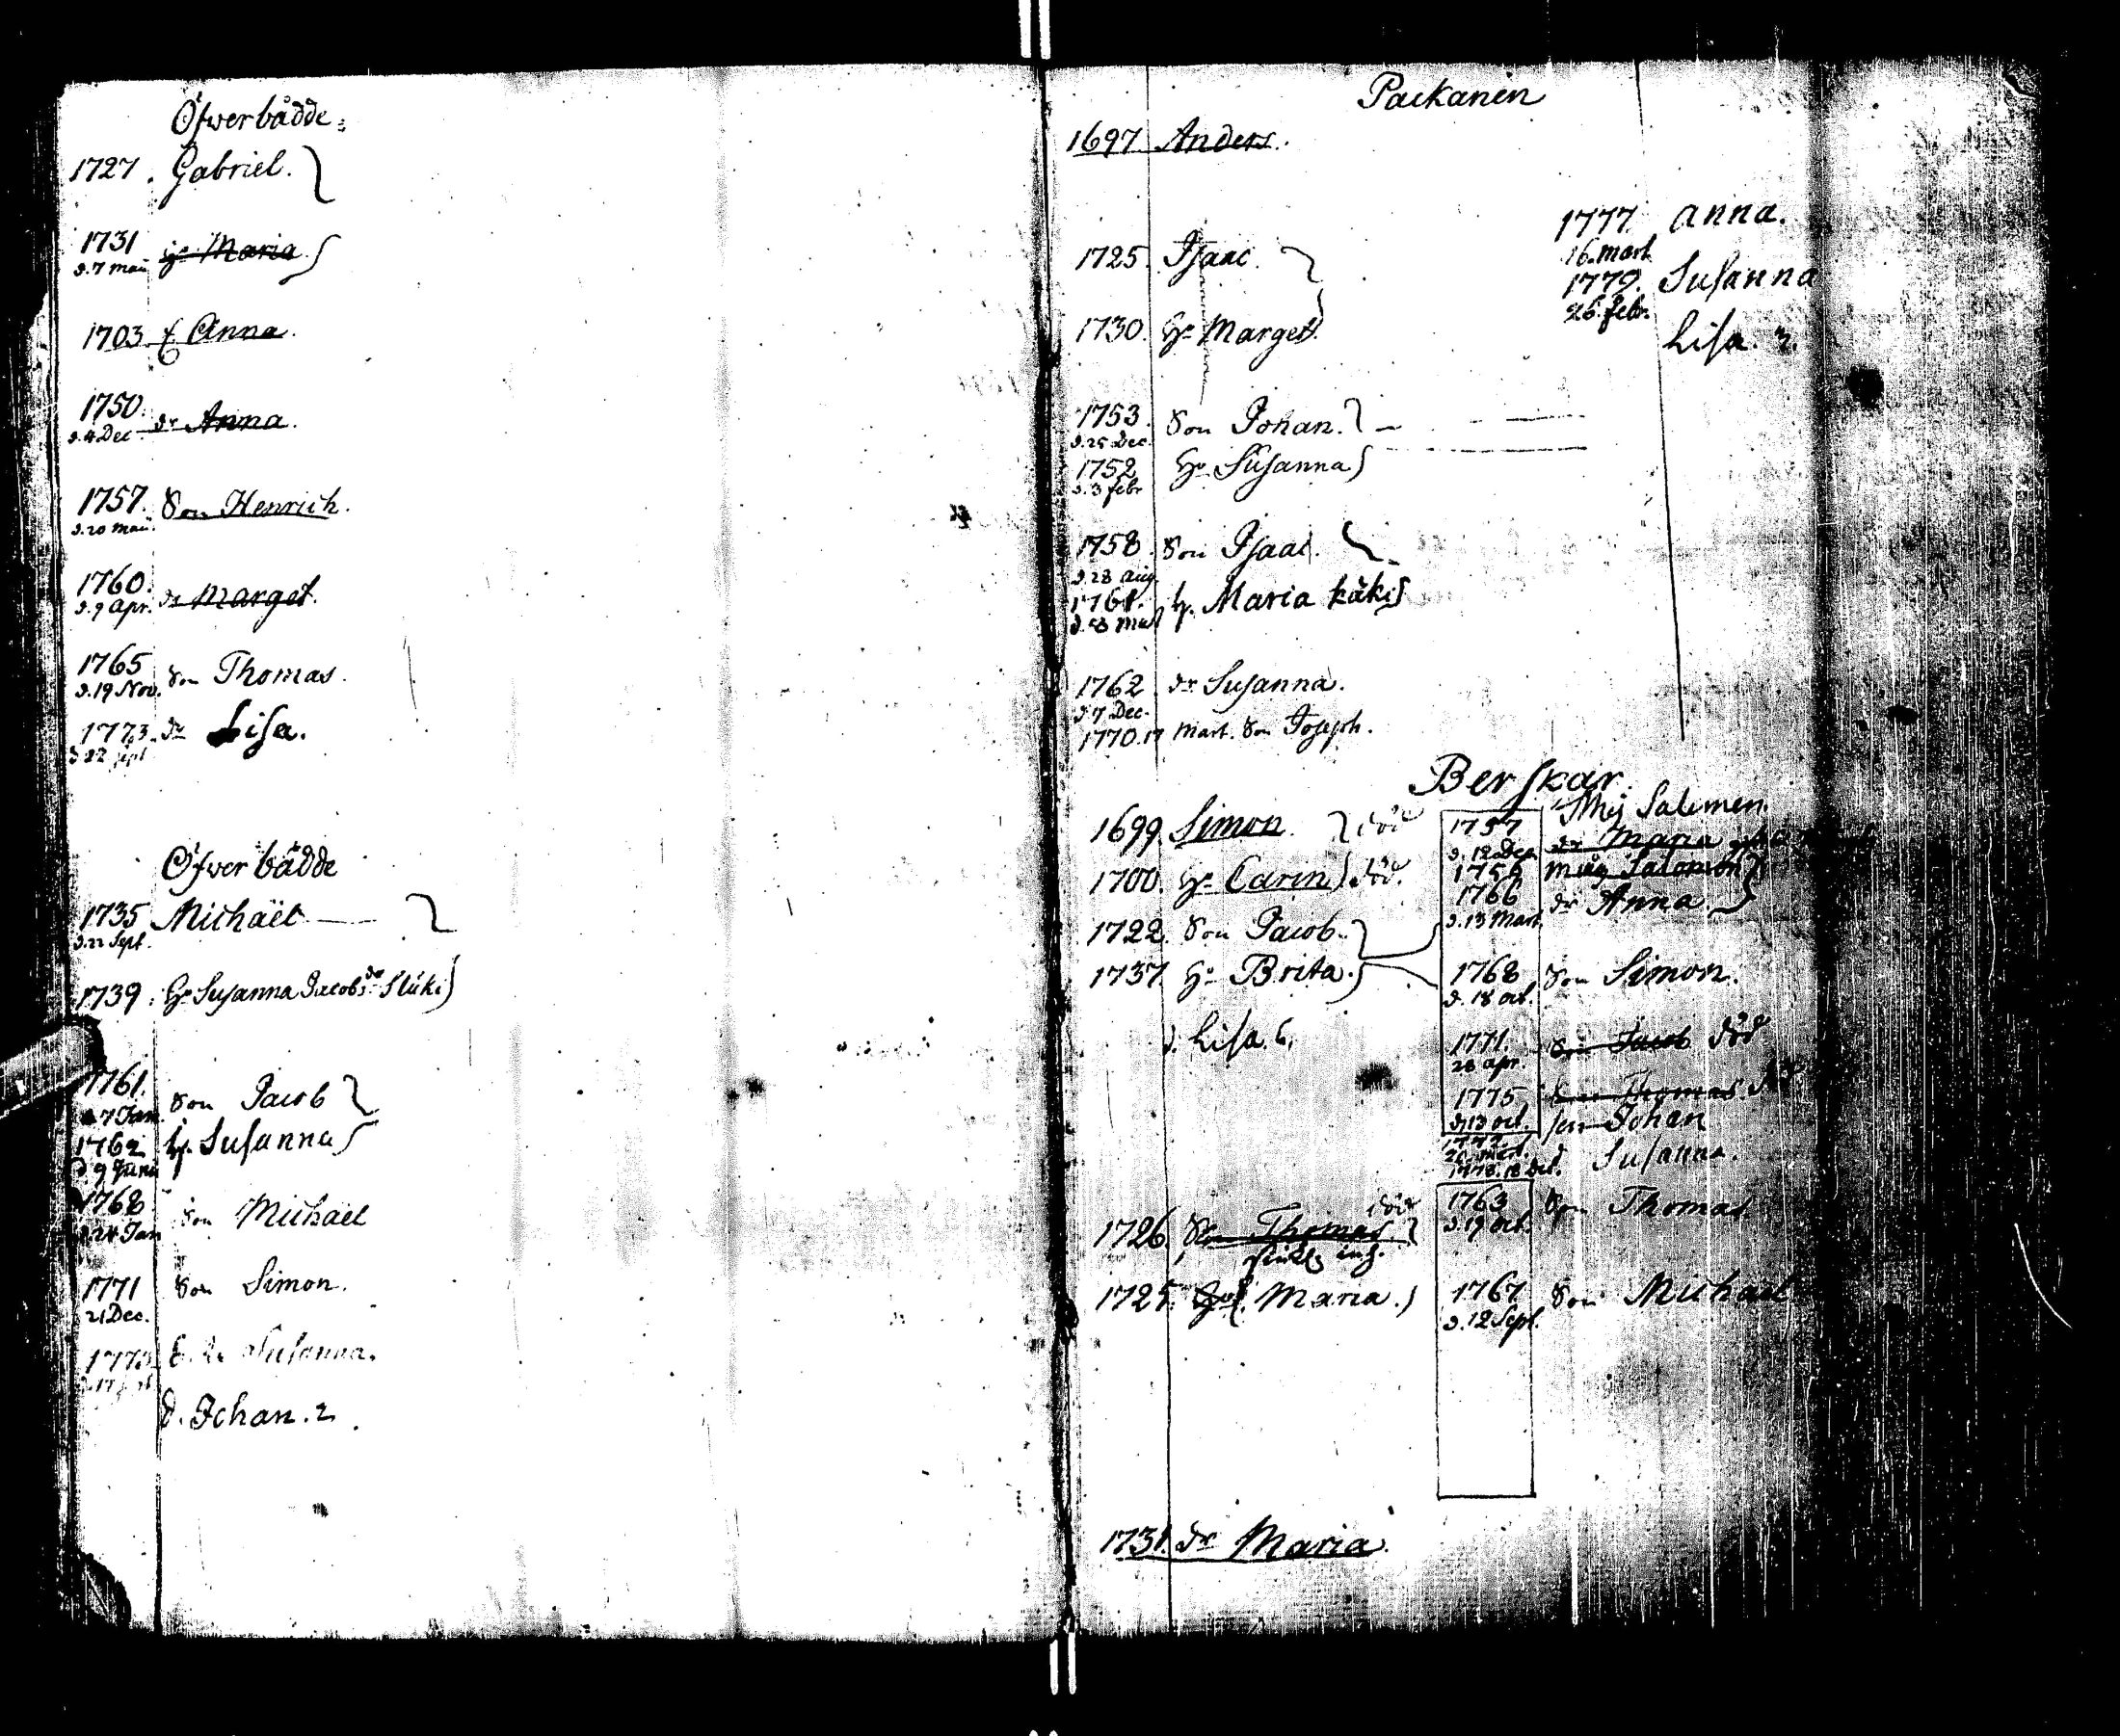 Öfwerbådde
1727. Gabriel.
1731 Hu Maria
d. 7 maii
1703 E Anna.
1750. dr Anna.
d. 4 Dec
1757. Son Henrich.
d. 20 maii.
1760. dr Marget.
d. 9 Apr.
1765 Son Thomas.
d. 19 Nov.
1773. dr Lisa.
d. 22 sept
Öfwer bådde
1735 Michaël
d. 22 Sept.
1739. Hu Susanna Jacobs dr Slüki
1761. Son Jacob
d. 7 Jan.
1762 h. Susanna
d 9 Junii
1768 Son Michaël
d. 24 Jan
1771 Son Simon.
21 Dec.
1773 Susanna.
d. Johan. 2
Packanen
1697 Anders.
1777. Anna.
16. mart
1725. Isaac.
1779. Susanna
26. febr.
1730. Hu Marget.
Lisa. 2.
1753. Son Johan.
d. 25 Dec.
1752 Hu Susanna
d. 3 febr
1758. Son Isaac.
d. 28 Aug.
1761. h. Maria käki
1762. dr Susanna.
d. 7 Dec.
1770. 17 Mart. Son Joseph.
Berskar
Salemen.
1699. Simon. död
1757 dr Maria
d. 12 Dec.
1700. Hu Carin död.
1756 måg Salomon
1766 dr Anna.
d. 13 Mart.
1722. Son Jacob.
1737. Hu Brita.
1768 Son Simon.
d. 18 oct.
d. Lisa. 6.
1771. Son Jacob död
28 apr.
1775 Son Thomas
d. 13 oct. son Johan
1778. 18 Dec. d Susanna.
1763 Son Thomas
d. 19 oct.
1726. Son Thomas död
1725. Maria.
1767 Son Michaël
d. 12 Sept.
1731. dr Maria.